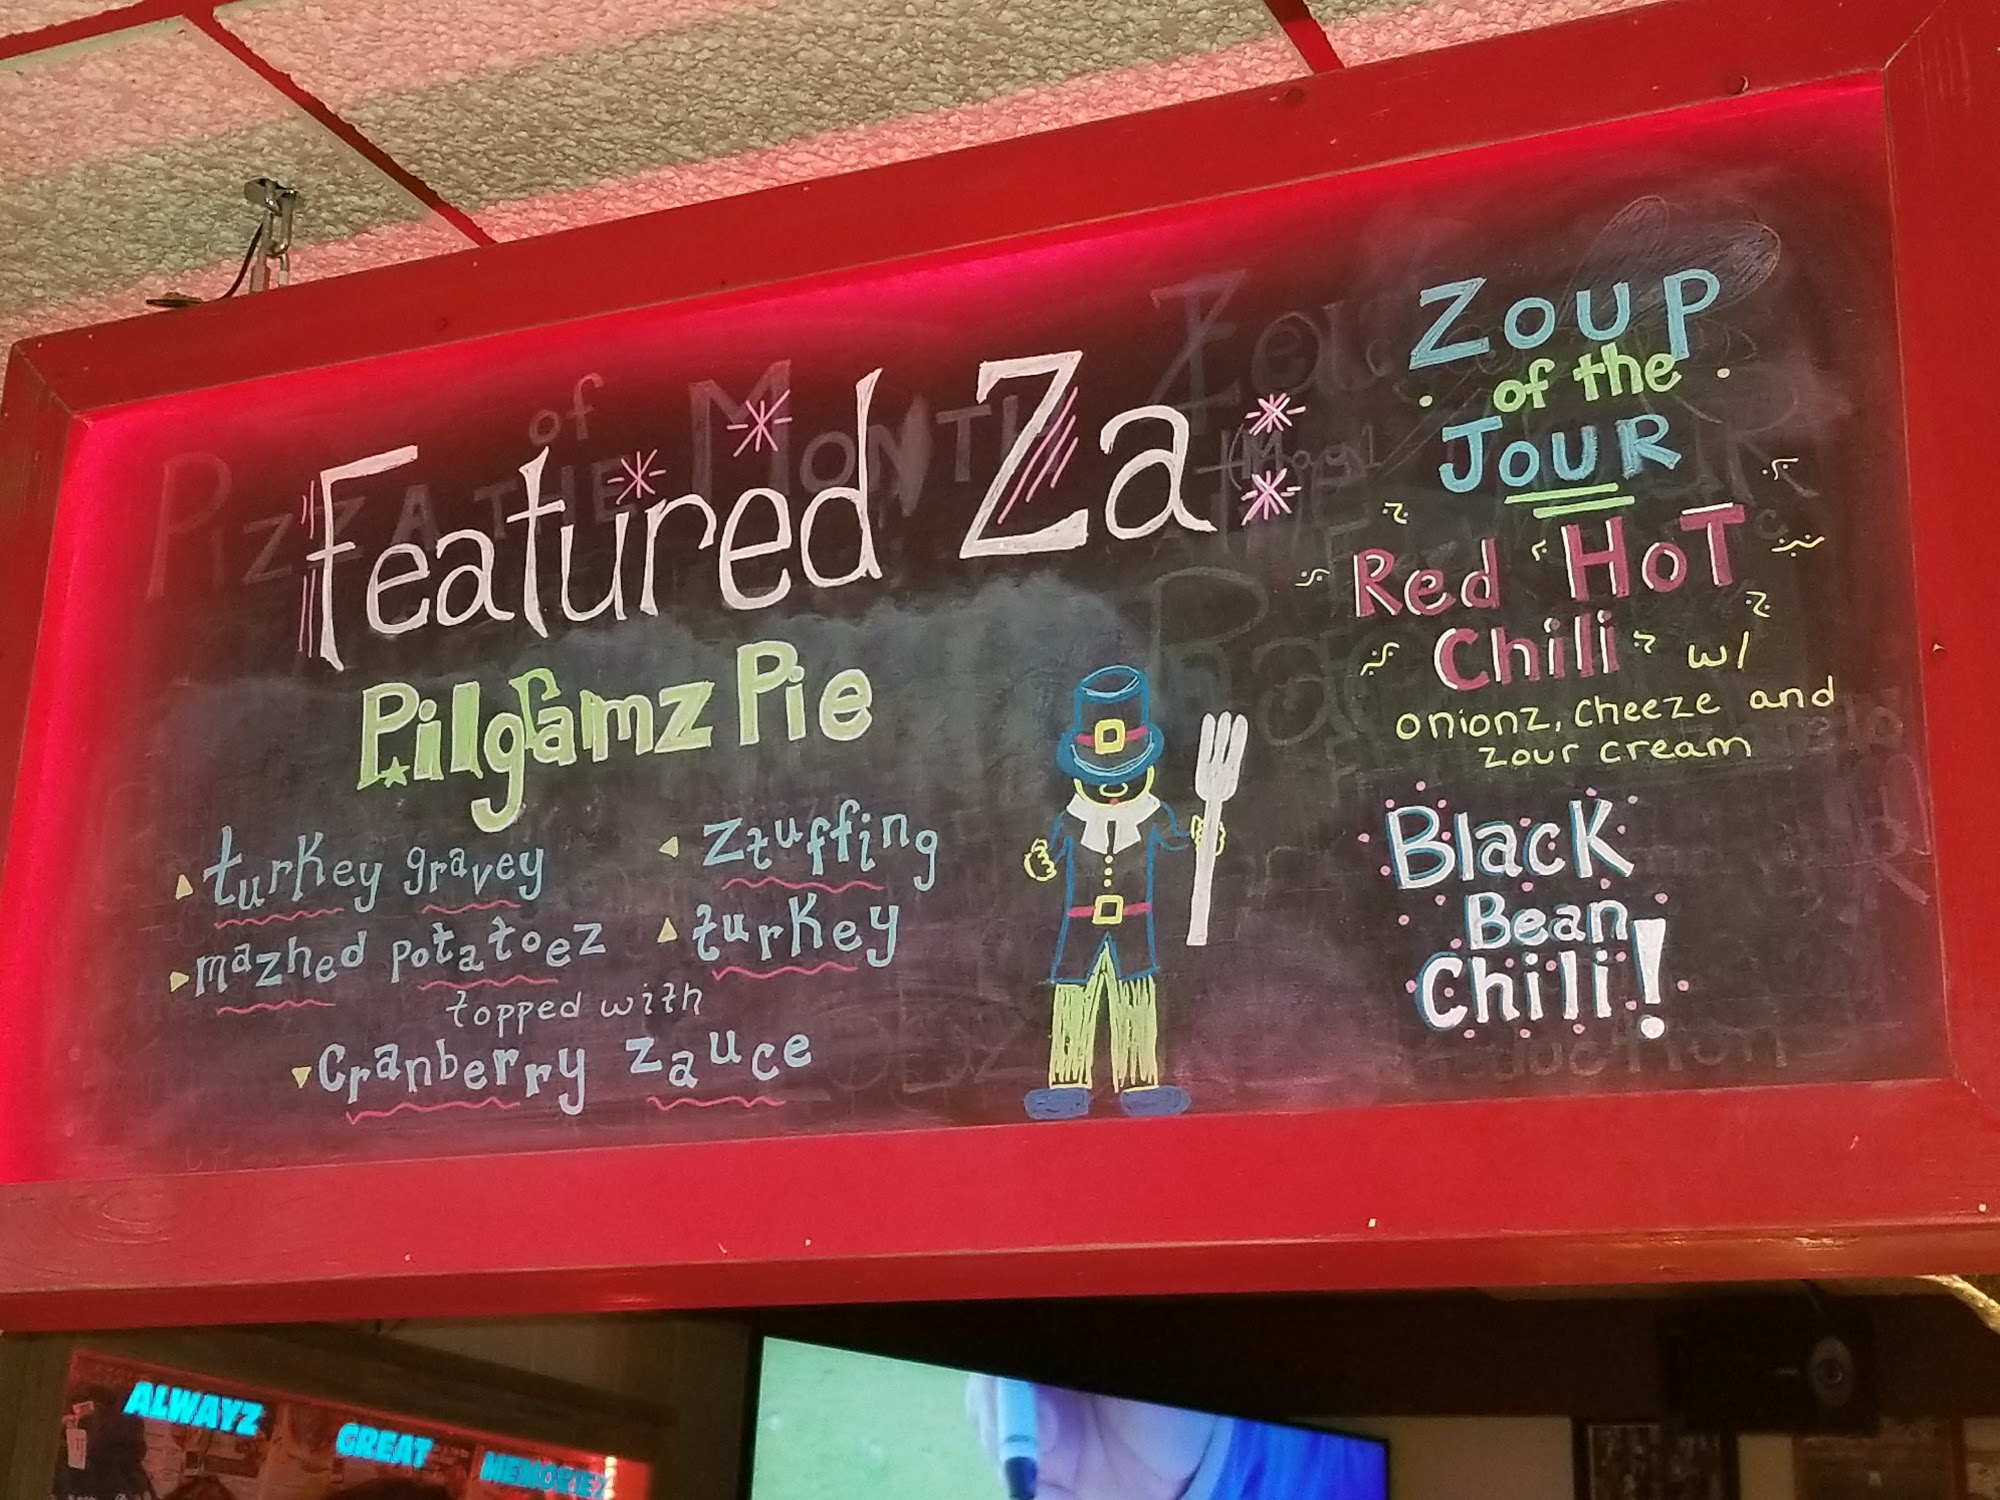 Featured Za
Pilgramz Pie
turkey gravey
mazhed potatoez
Ztuffing
turkey
topped with
Cranberry zauce
Zoup
of the
Jour
Red Hot
Chili w/
onionz, cheeze and
zour cream
Black
Bean
Chili!
Pizza of the Month
ALWAYZ
GREAT
MEMORIEZ